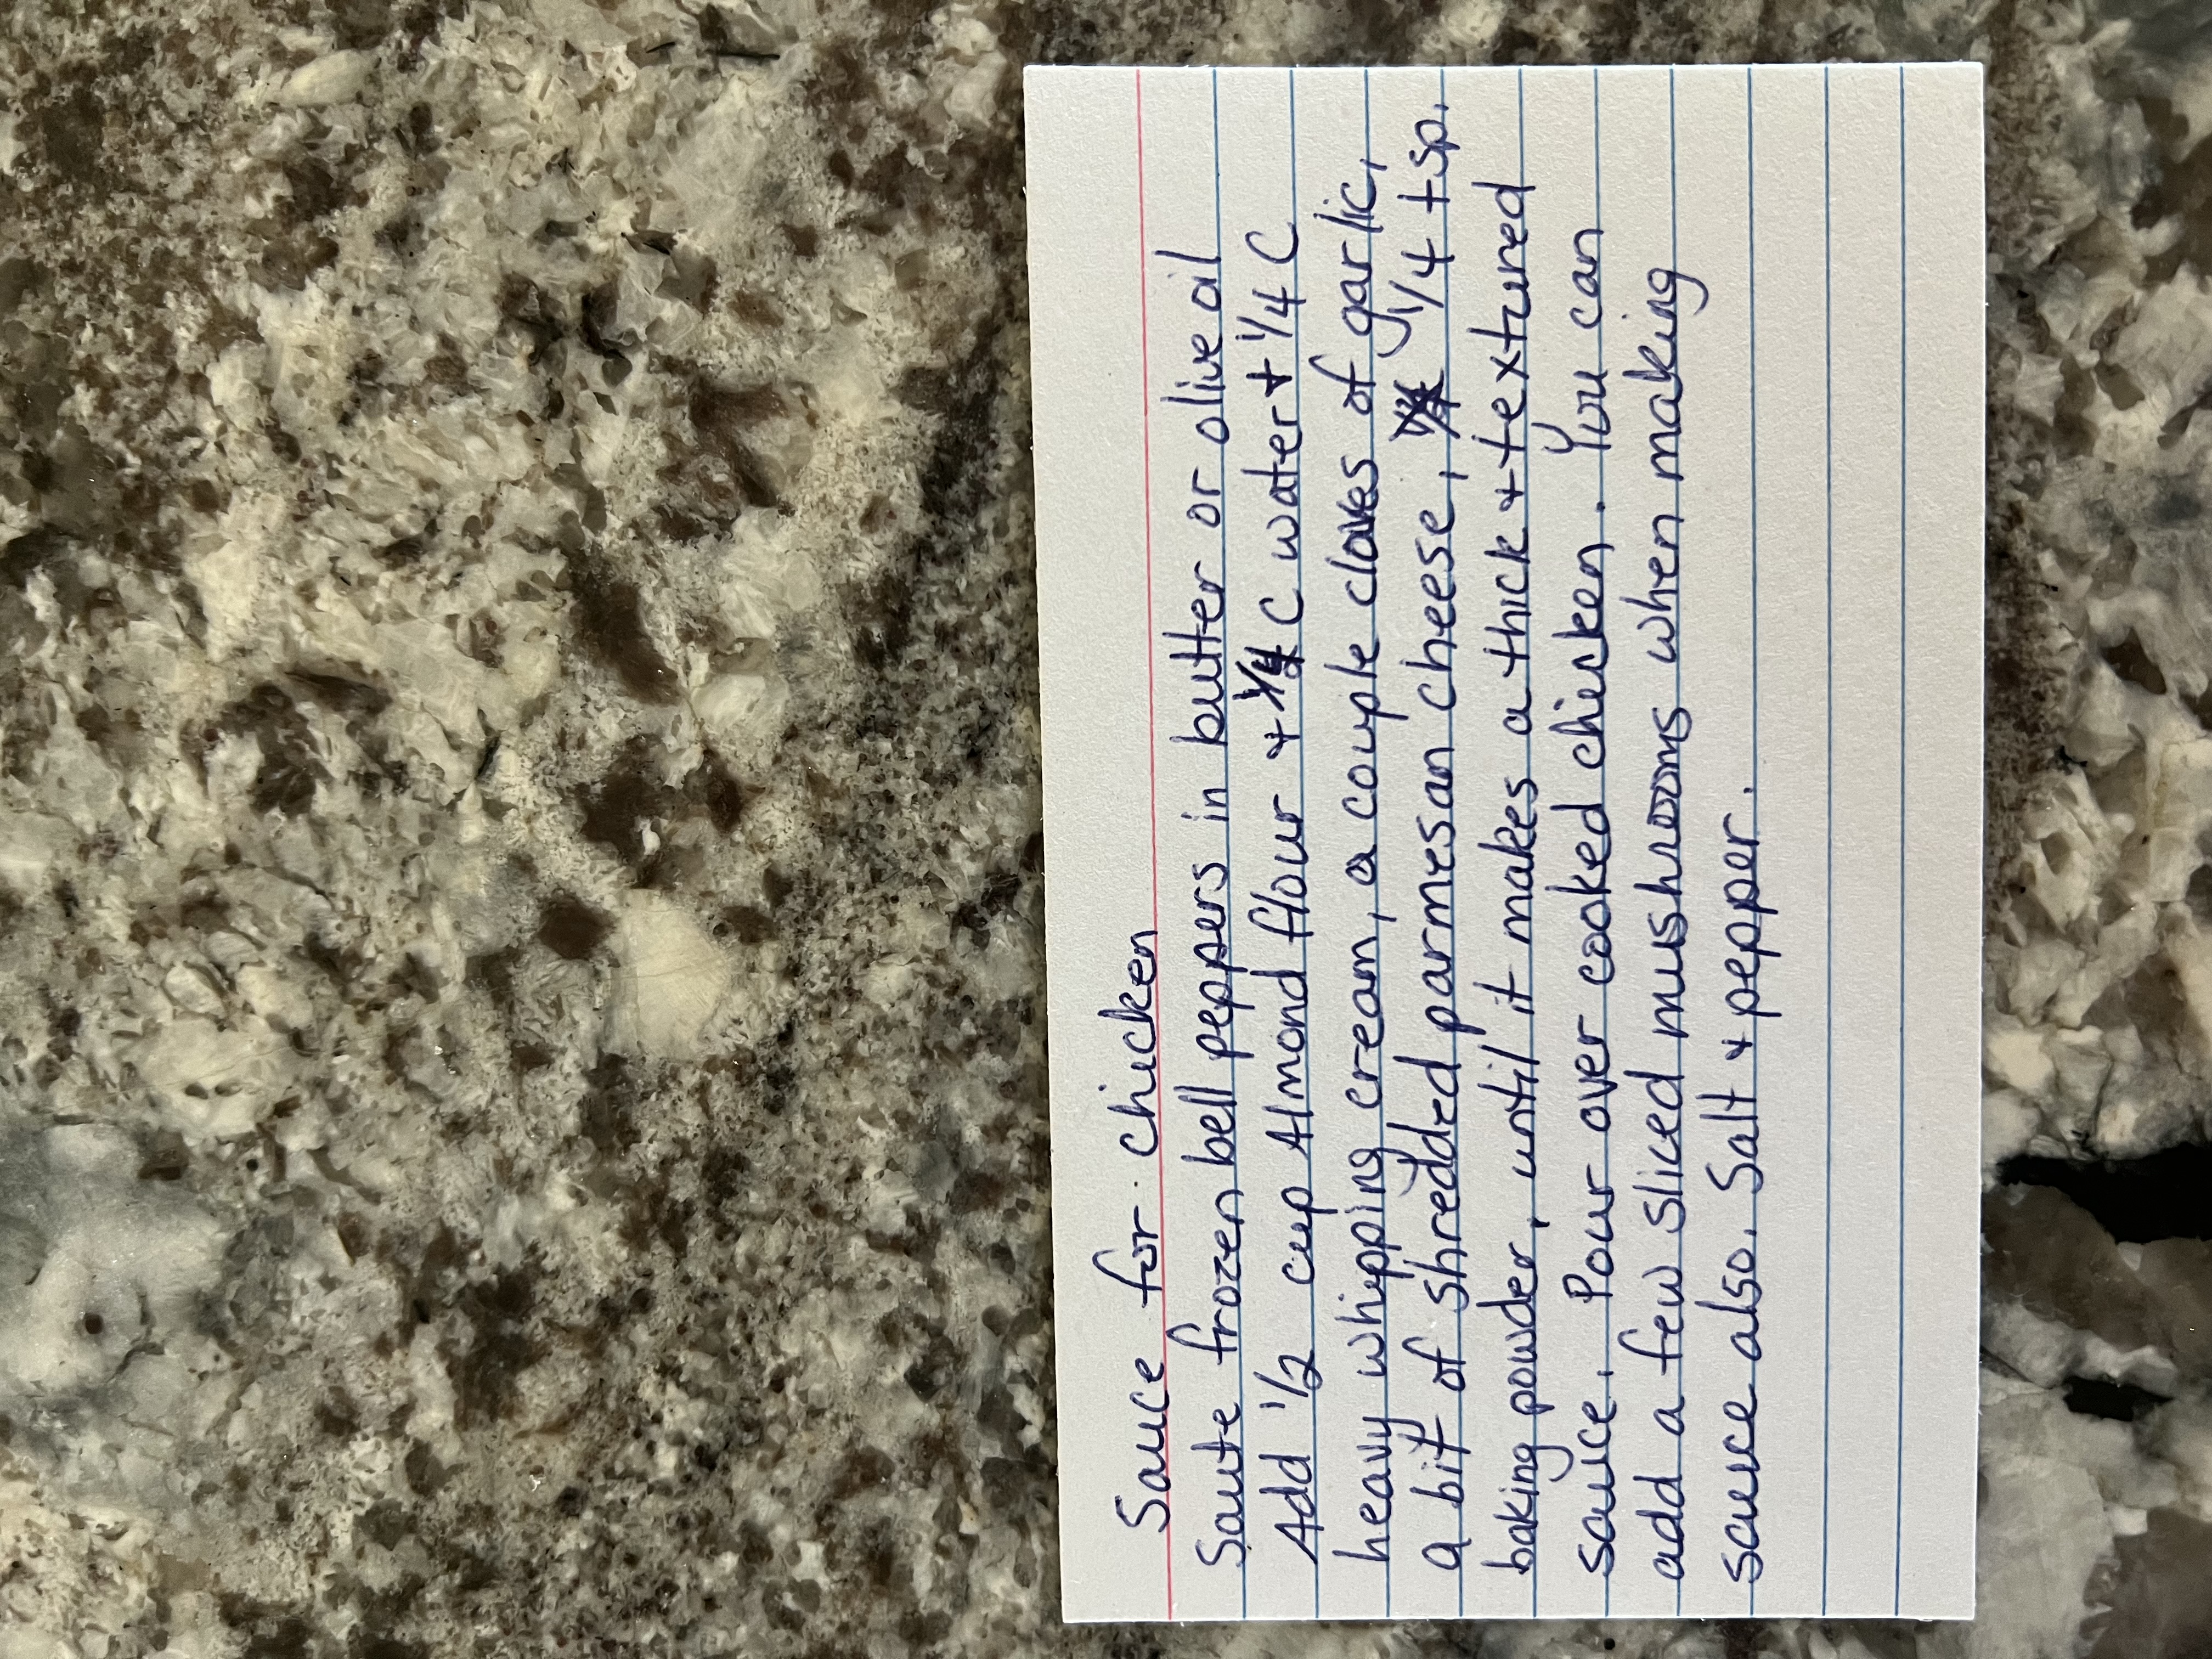 Sauce for chicken
Saute frozen bell peppers in butter or olive oil
Add 1/2 cup Almond flour + 1/4 C water + 1/4 C
heavy whipping cream, a couple cloves of garlic,
a bit of shredded parmesan cheese, 1/4 tsp.
baking powder, until it makes a thick + textured
sauce. Pour over cooked chicken. You can
add a few sliced mushrooms when making
sauce also. Salt + pepper.